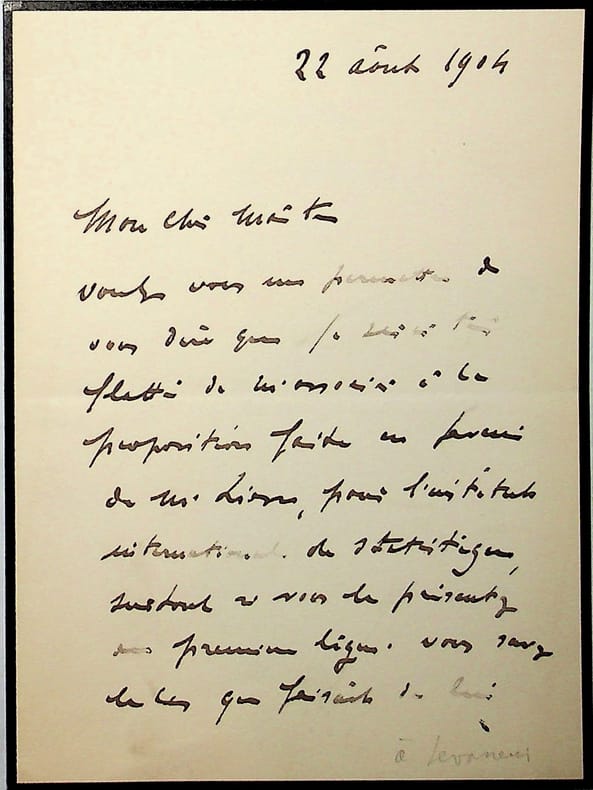 22 août 1904
Mon cher Maître
voulez vous me permettre de
vous dire que je serai très
flatté de m'associer à la
proposition faite en faveur
de M. Liesse, pour l'institut
international de statistique,
surtout si vous le présentez
en première ligne. vous savez
le cas que faisait de lui
à Levasseur